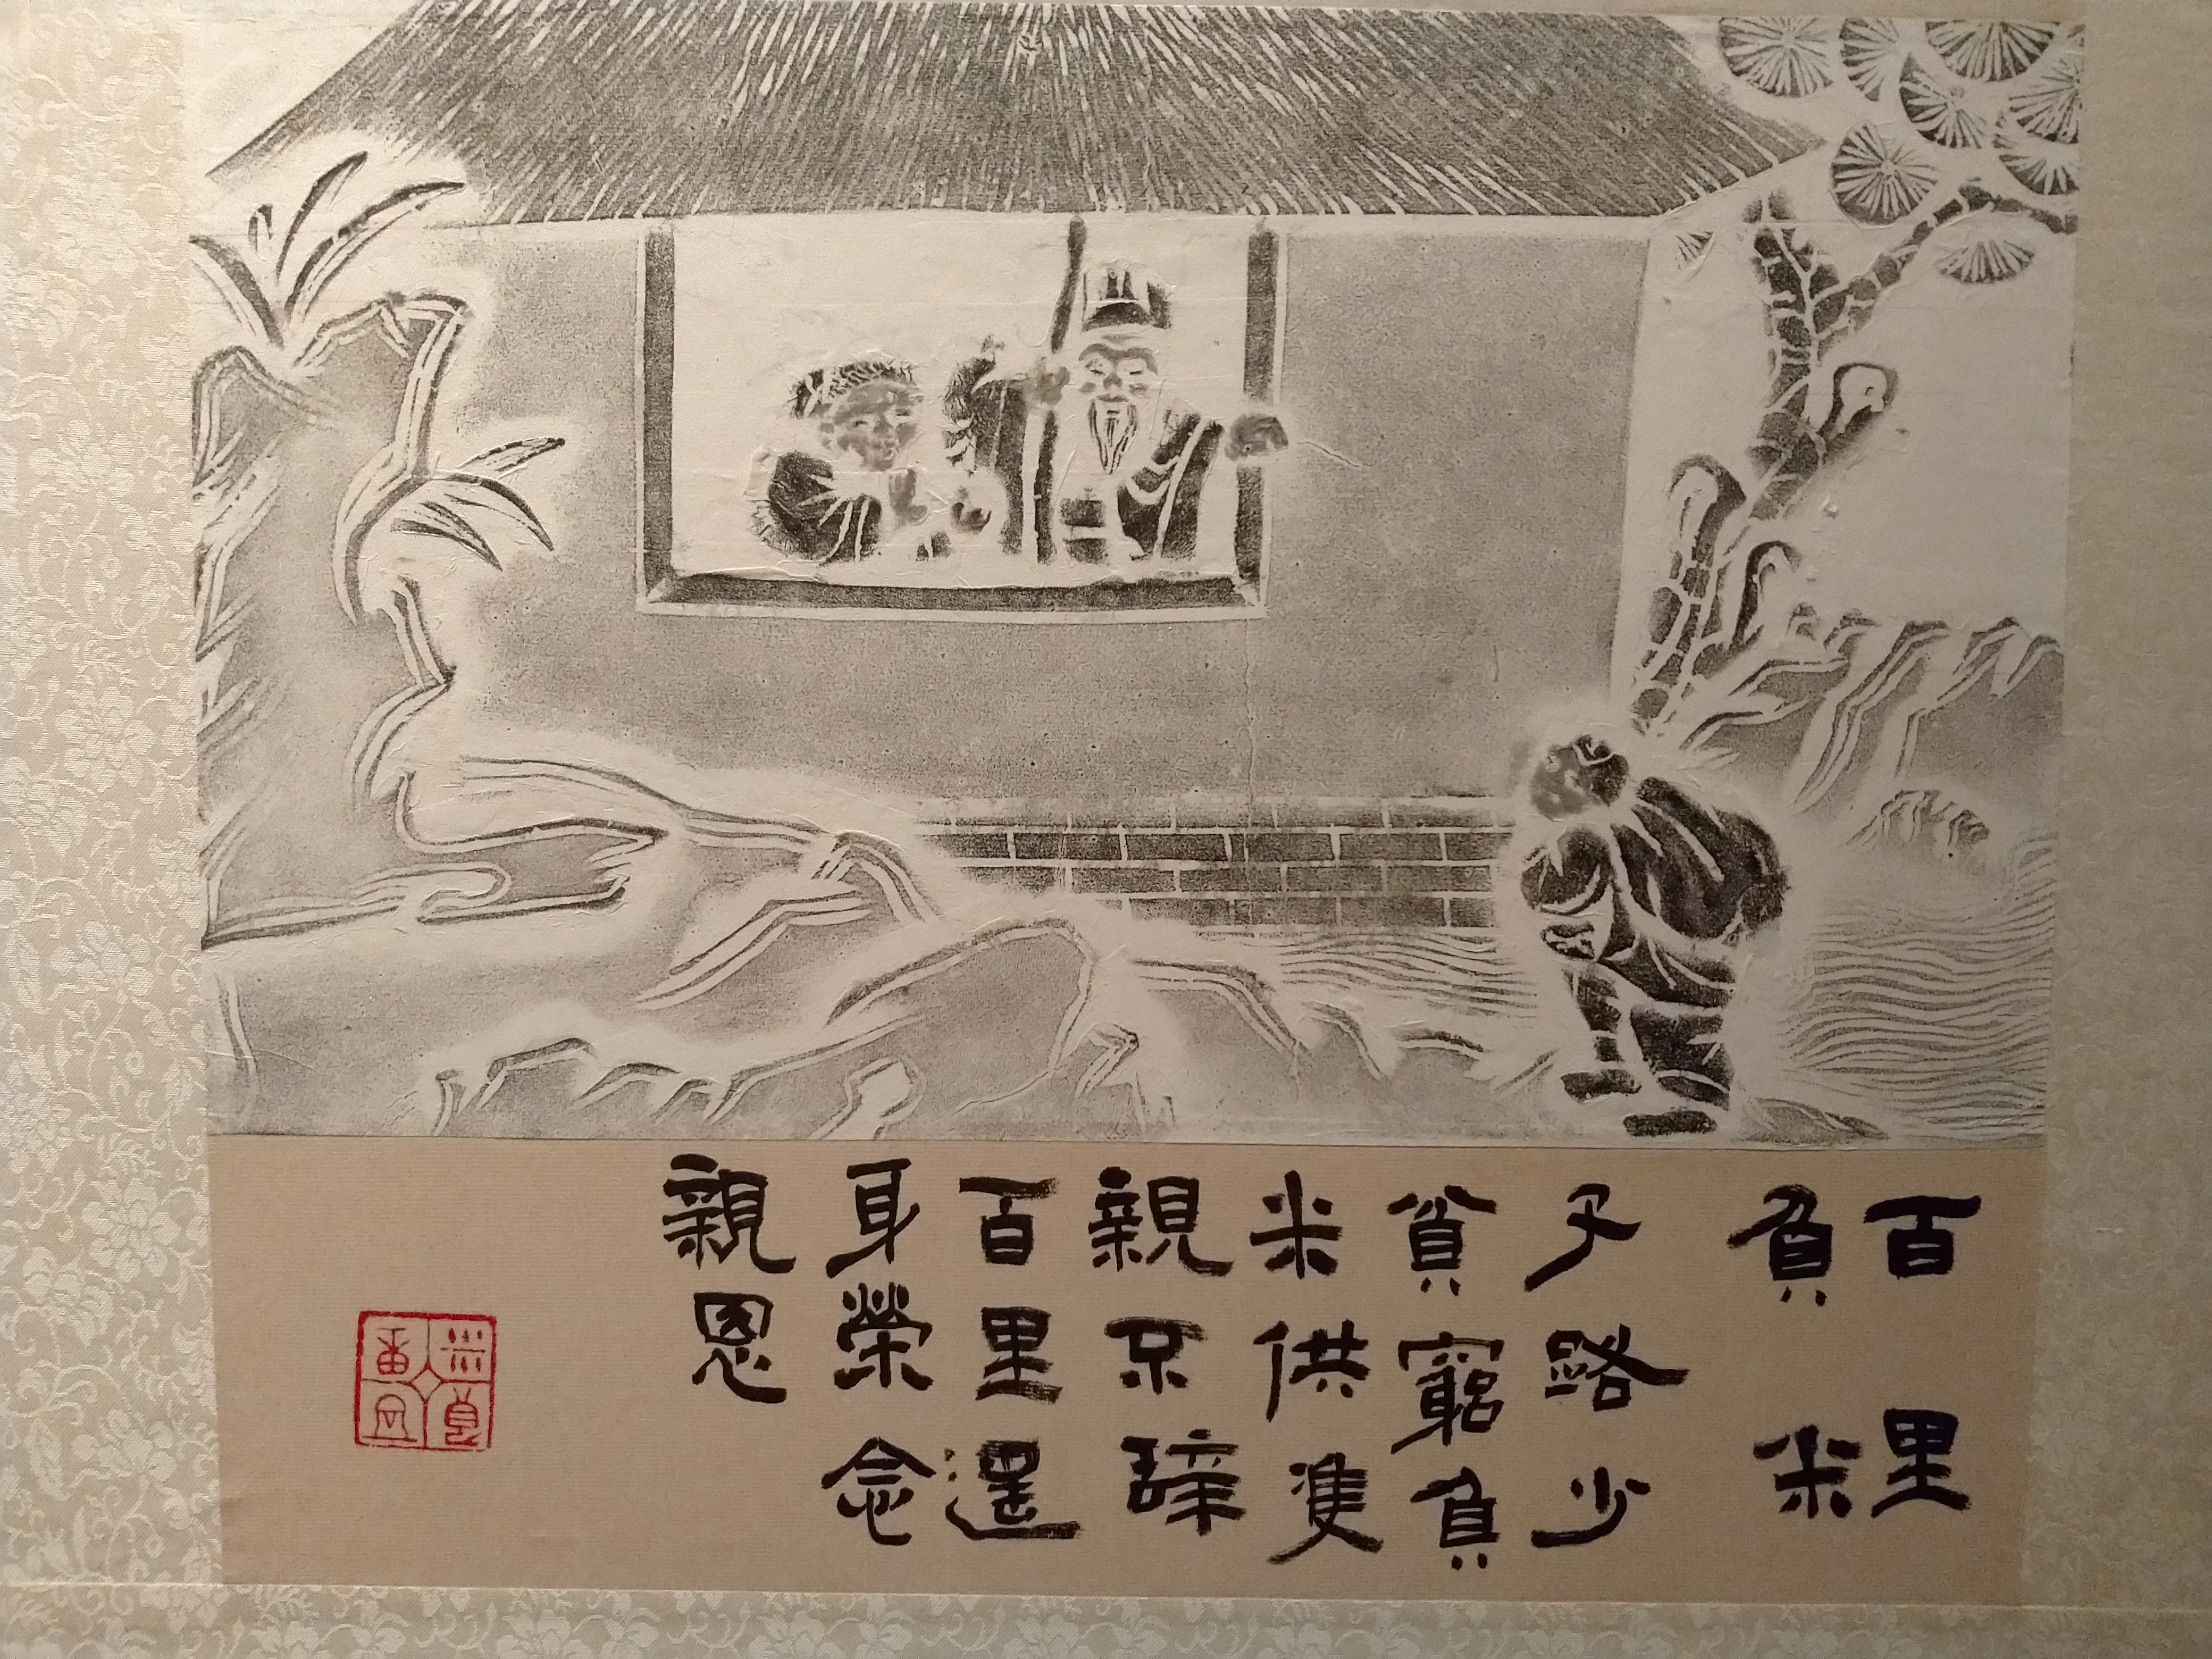 百里
負米
子路少
貧窮負
米供雙
親不辭
百里還
身榮念
親恩